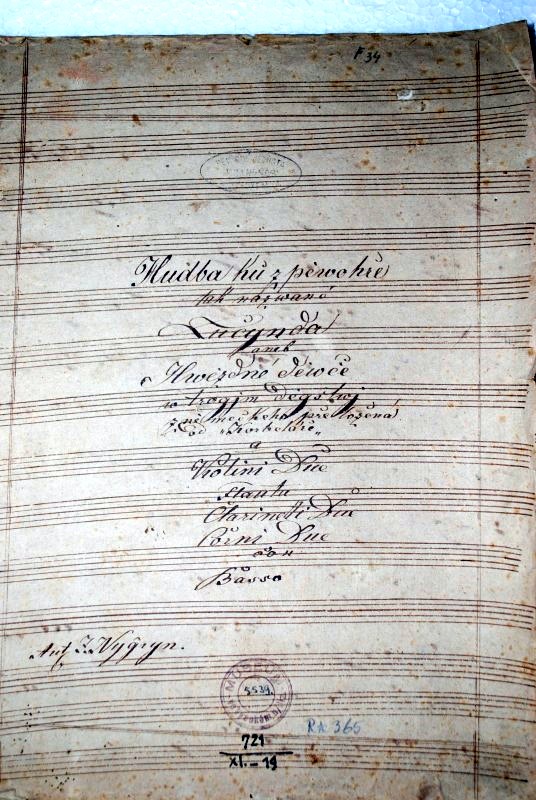 F 34
Hudba ku zpěwohře
tak nazwané
Lucynda
aneb
Hwězdné děwče
w trogim dėgstwj
z německeho přeložená
od „
a
Violini Due
Flauto
Clarinetti Due
Corni Due
con
Basso
Ant. J. Vygsyn.
MUSEUM
5539.
RA 365
721
XI.-19